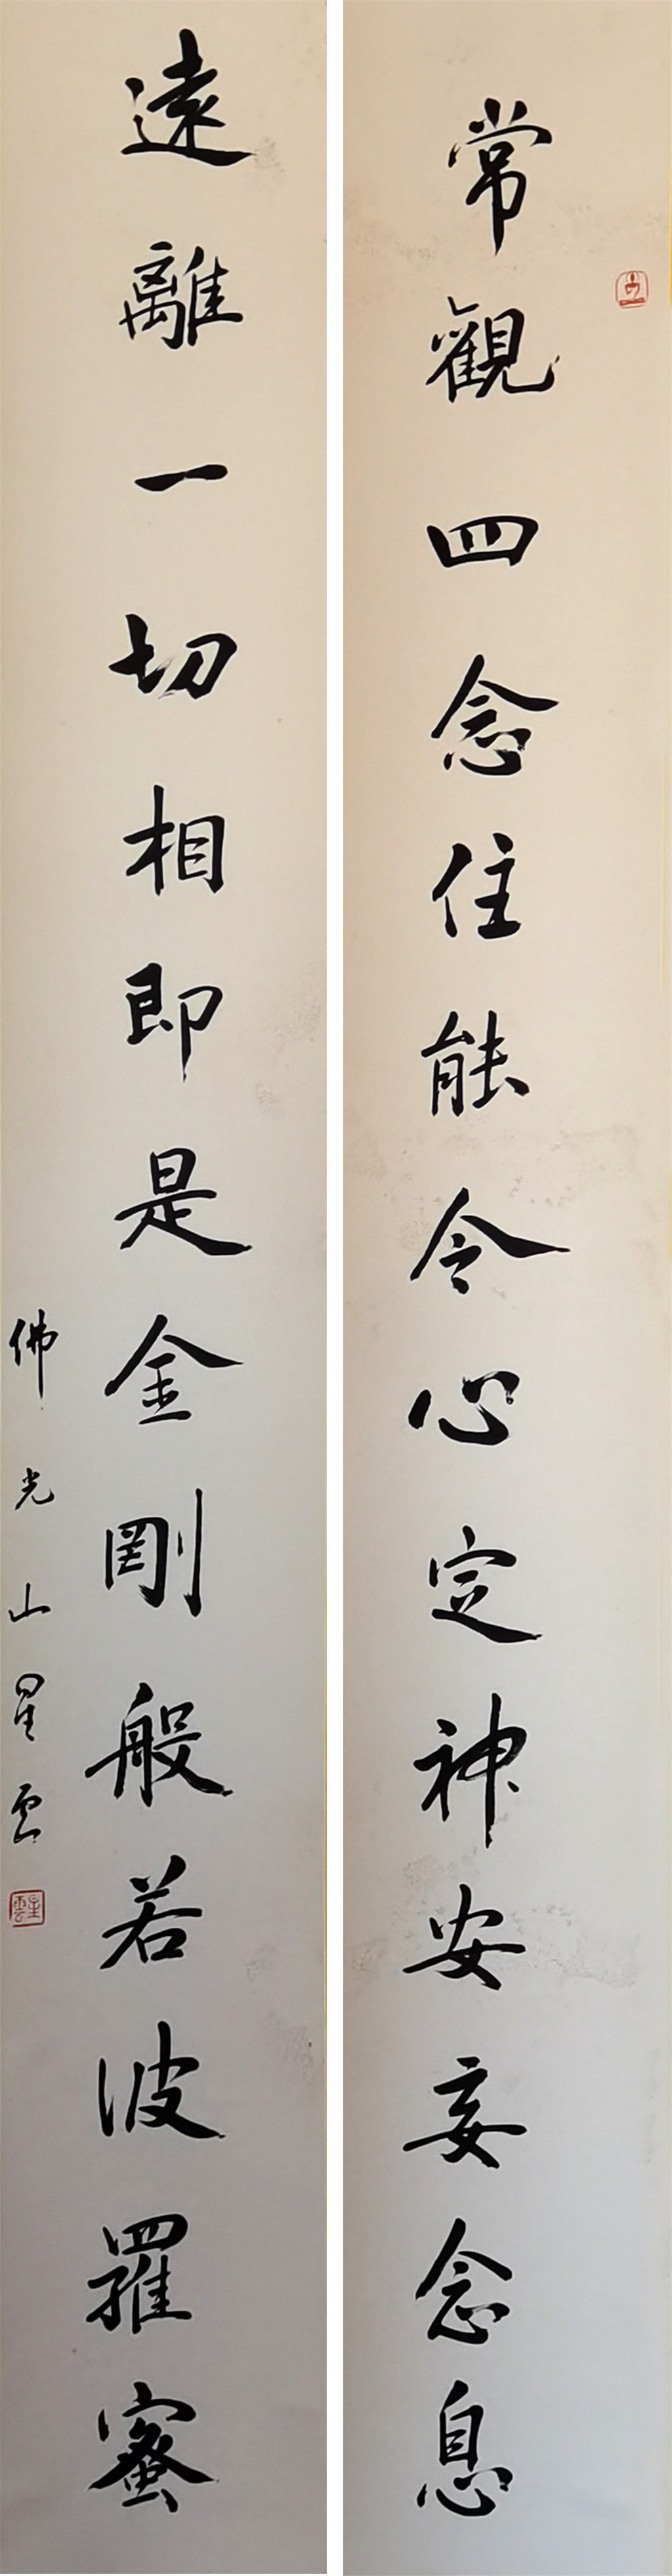 常觀四念住能令心定神安妄念息
遠離一切相即是金剛般若波羅蜜
佛光山星雲
星雲